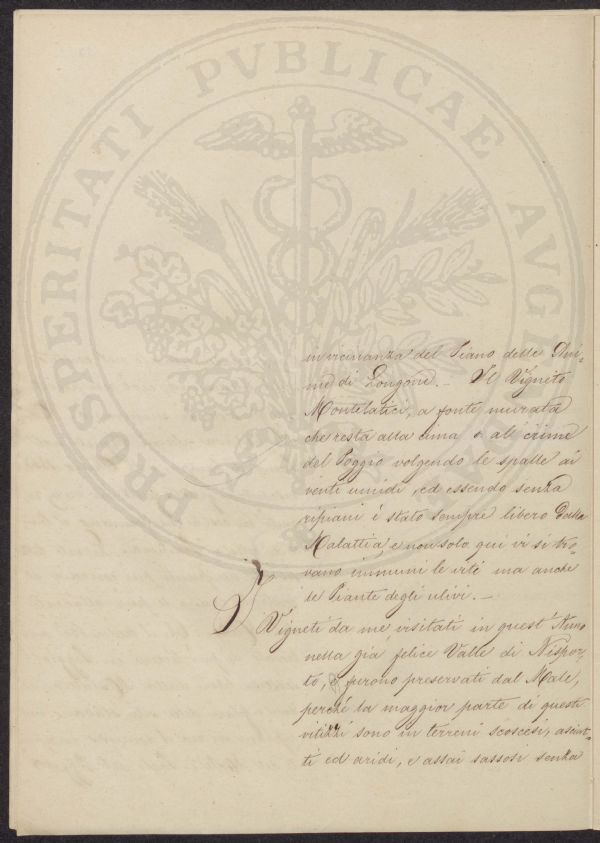 PROSPERITATI PVBLICAE AVGE
in vicinanza del Piano delle Ani=
me di Longone. — Il Vigneto
Montelatici, a fonte murata
che resta alla cima o al crine
del Poggio volgendo le spalle ai
venti umidi, ed essendo senza
ripiani è stato sempre libero dalla
Malattia, e non solo qui vi si tro=
vano immuni le viti ma anche
le Piante degli ulivi. —
I Vigneti da me visitati in quest' Anno
nella già felice Valle di Nispor=
to, furono preservati dal Male,
perché la maggior parte di questi
sono in terreni scoscesi, asciut=
ti ed aridi, e assai sassosi senza